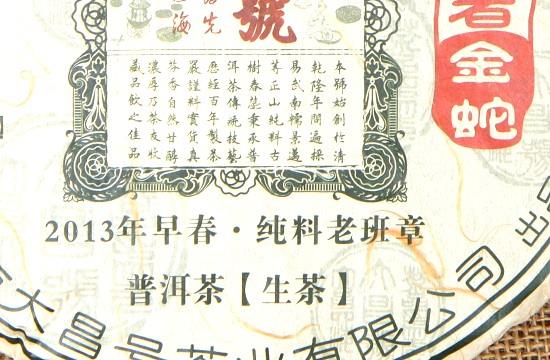 號
本號始創於清
乾隆年間遍採
易武南糯景邁
等正山純料古
樹春茶秉承普
洱茶傳統技藝
歷經百年製茶
嚴謹料實貨真
芬香自然甘醇
濃厚乃茶友收
藏品飲之佳品
金蛇
2013年早春·纯料老班章
普洱茶【生茶】
大昌号茶业有限公司 出